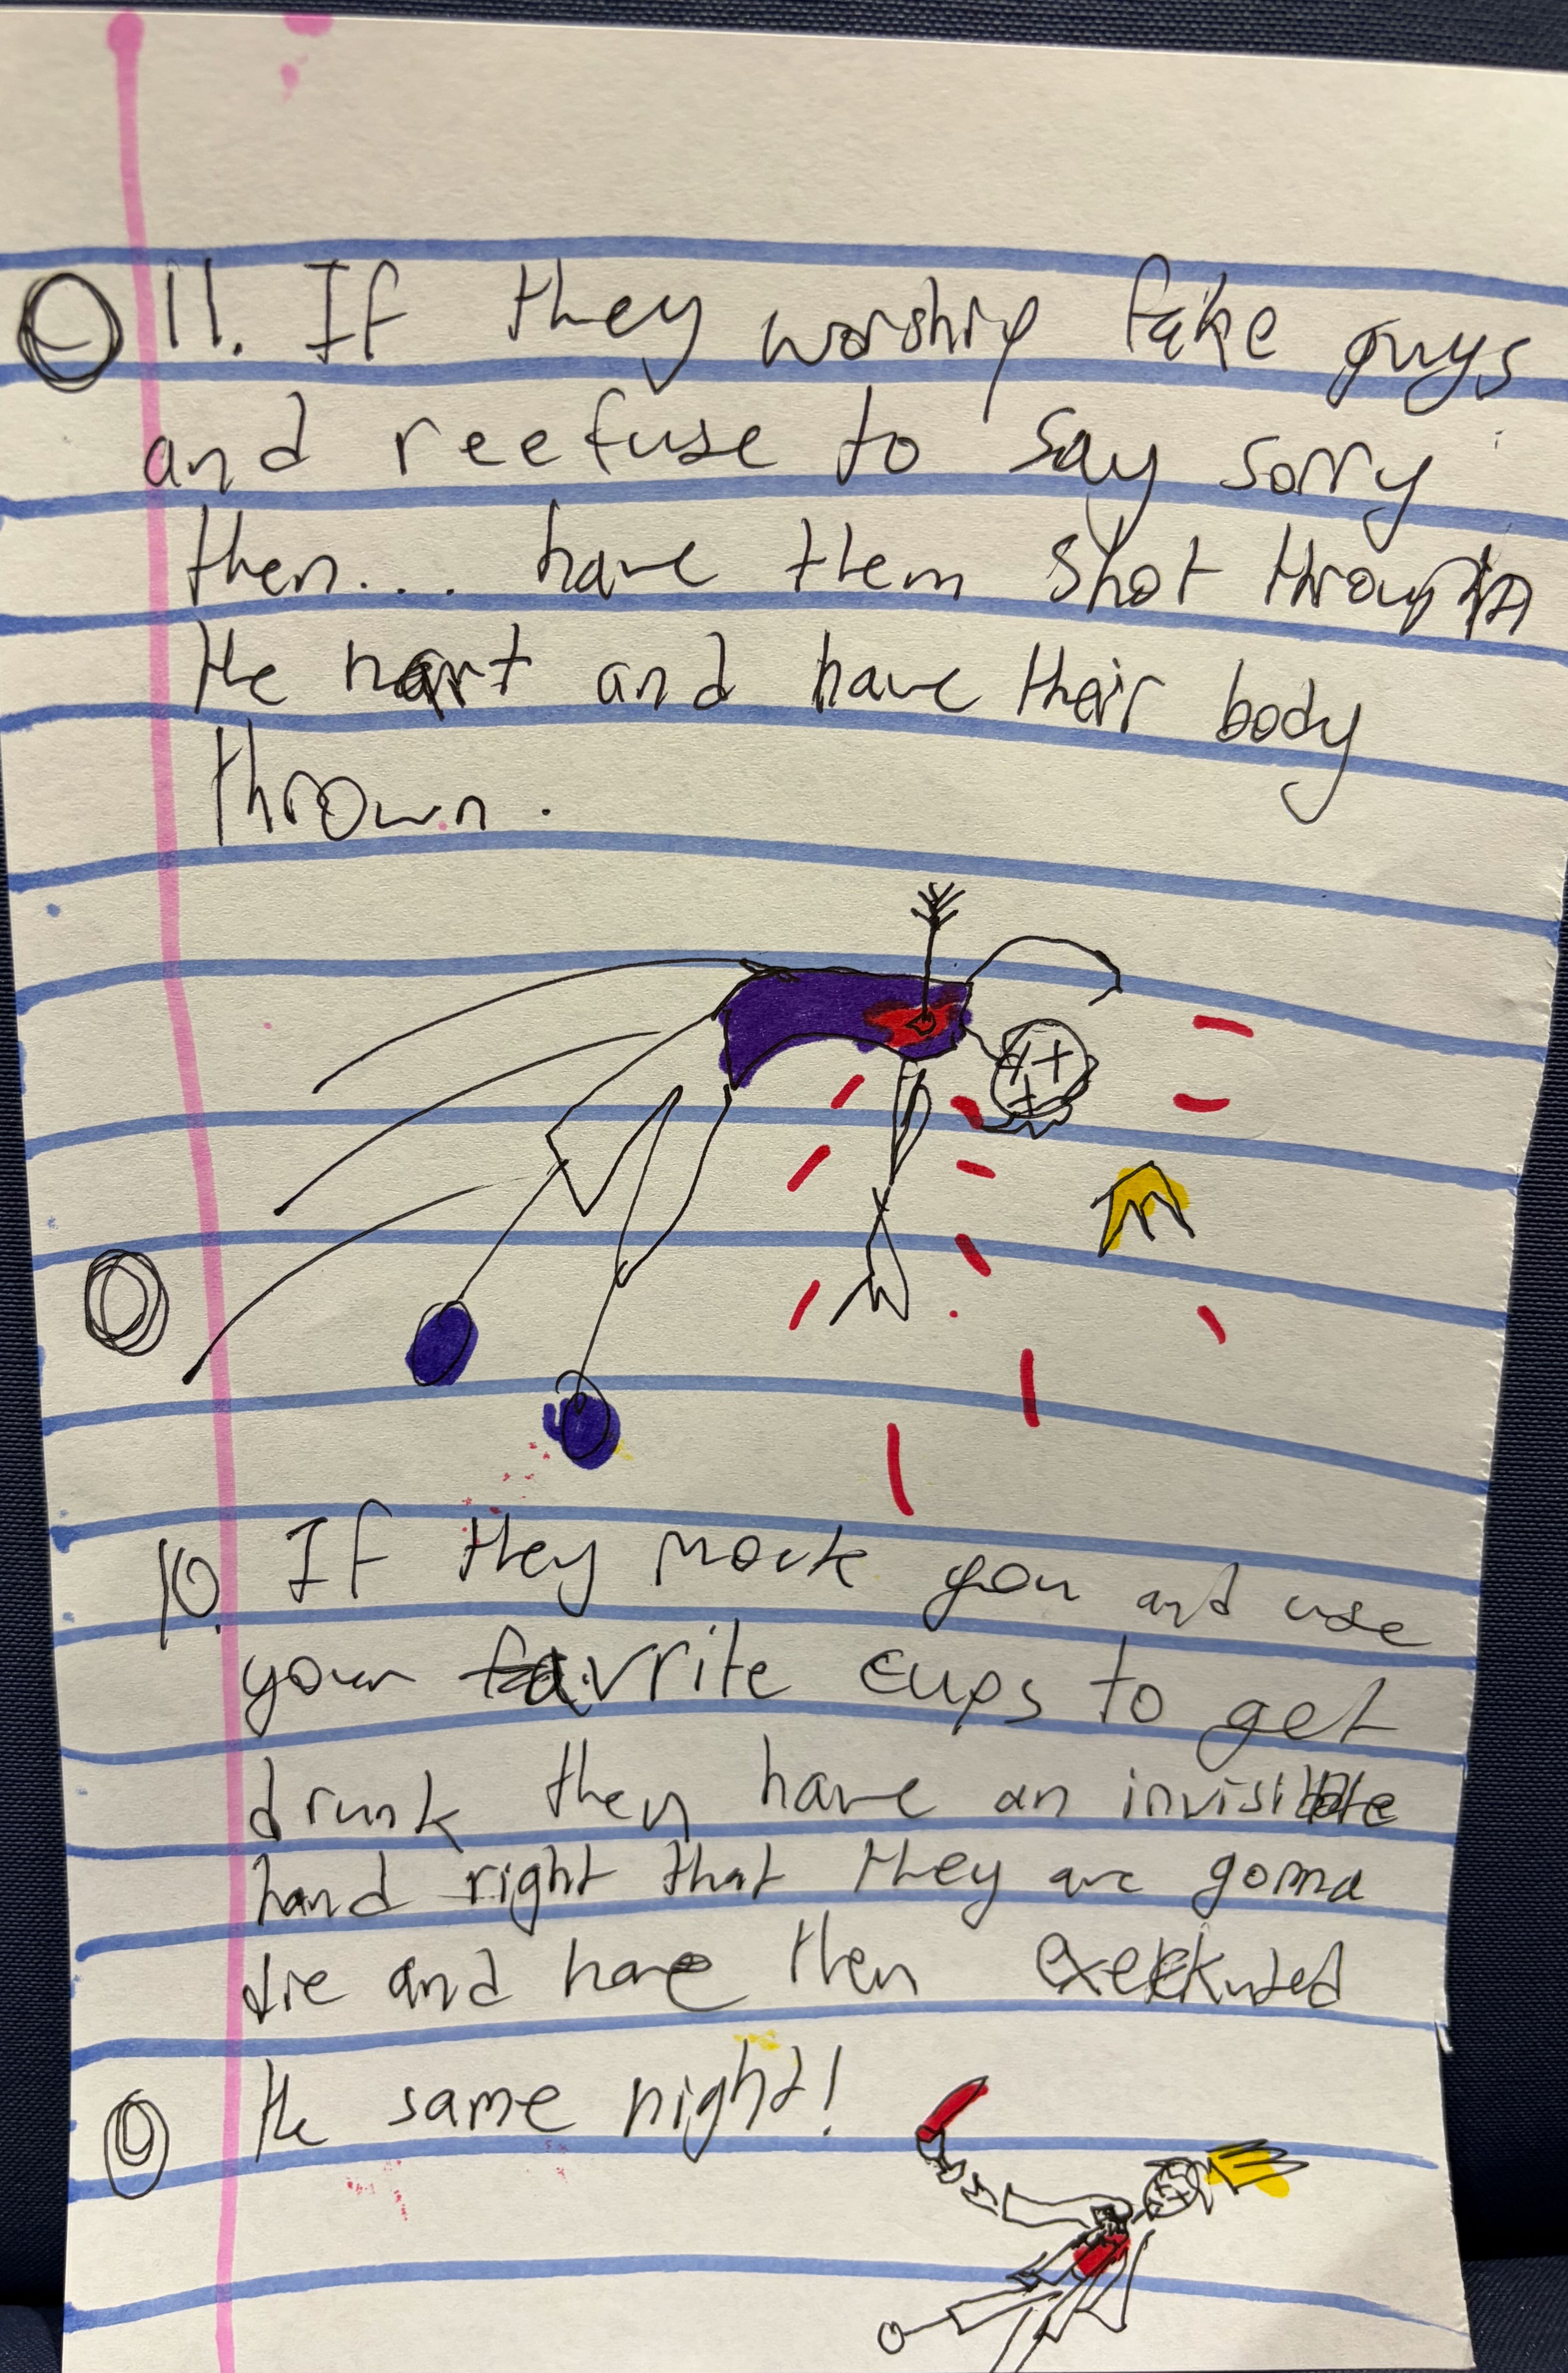 11. If they worship fake guys
and reefuse to say sorry
then... have them shot through
the hart and have their body
thrown.
10. If they mock you and use
your favrite cups to get
drunk then have an invisible
hand right that they are gonna
die and have then exekuted
the same night!